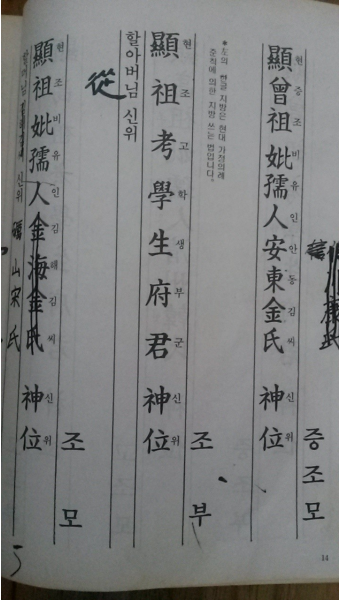 증조모
顯曾祖妣孺人安東金氏 神位
현증조비유인안동김씨 신위
한글 지방은 현대 가정의례
준칙에 의한 지방 쓰는 법입니다.
조부
顯祖考學生府君 神位
현조고학생부군 신위
할아버님 신위
從
조모
顯祖妣孺人金海金氏 神位
현조비유인김해김씨 신위
할머님 신위
山宋氏
14